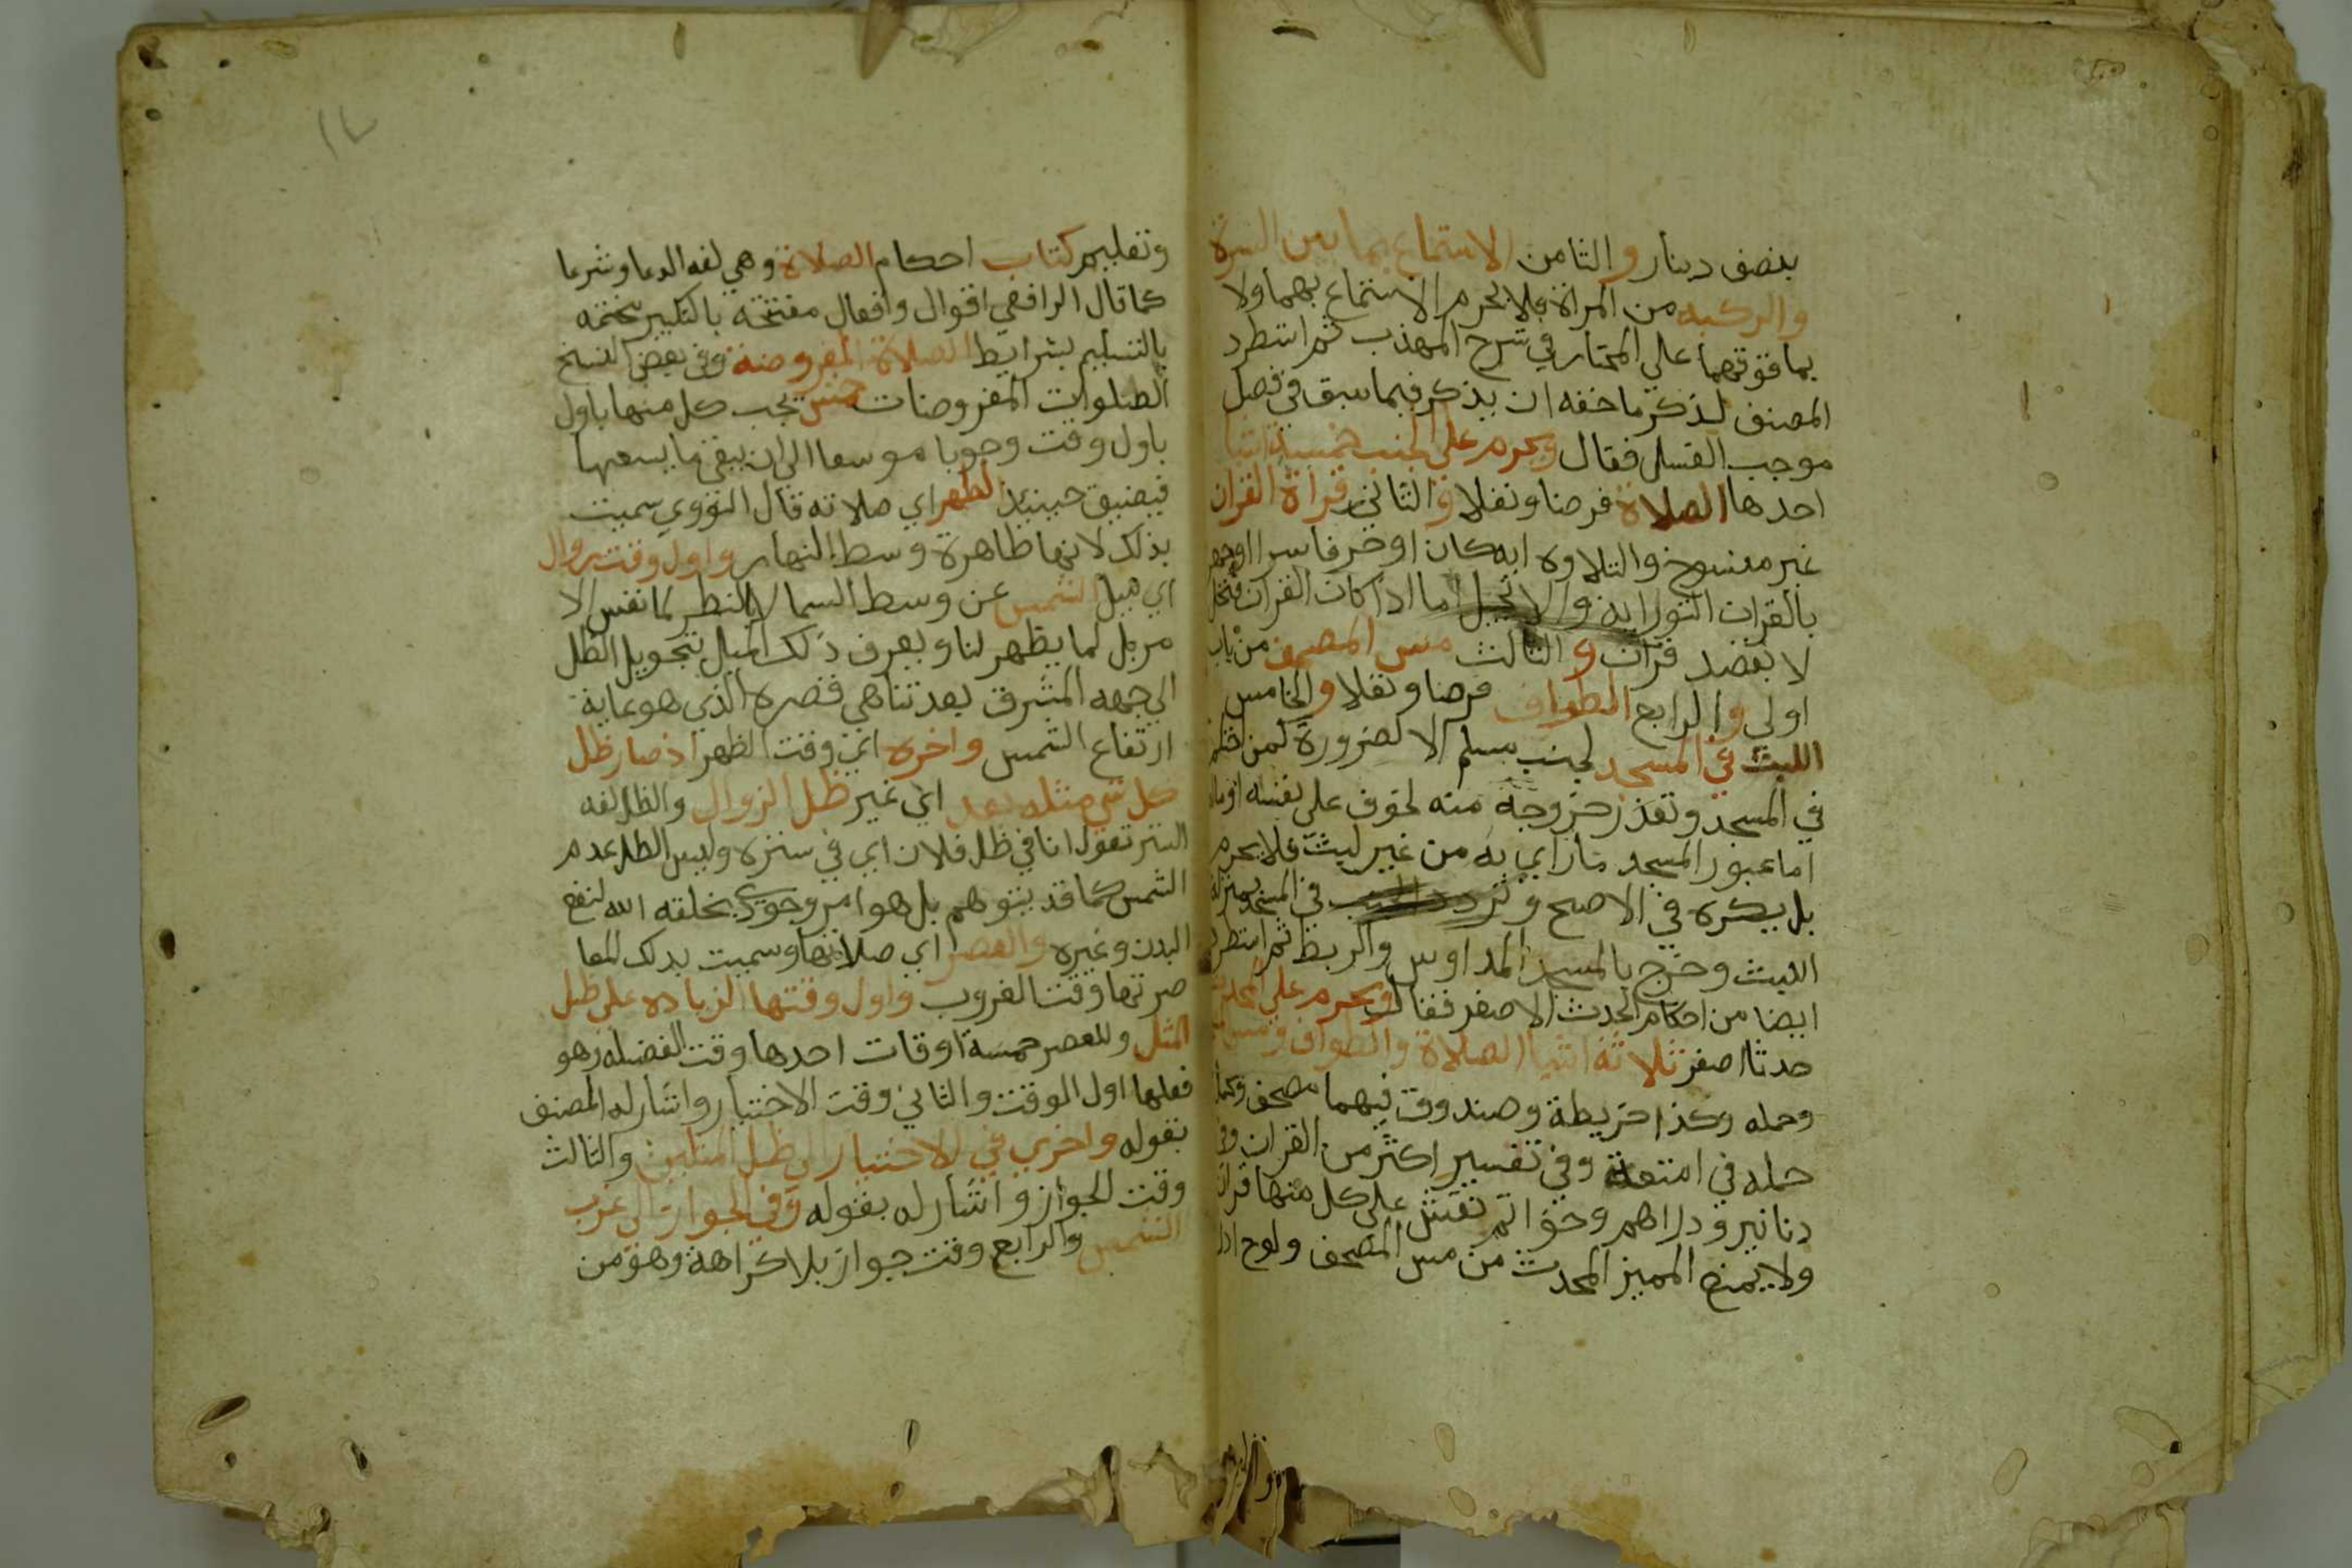 بنصف دينار والثامن الاستمتاع بما بين السرة
والركبه من المراة فلا يحرم الاستمتاع بهما ولا
بما فوقهما على المختار في شرح المهذب ثم استطرد
المصنف لذكر ما حقه ان يذكر فيما سبق في فصل
موجب الغسل فقال ويحرم على الجنب خمسة اشيا
احدها الصلاة فرضا ونفلا والثاني قراة القران
غير منسوخ التلاوه ايه كان او حرفا سرا او جهرا
بالقران التوراية والانجيل اما اذا كان القران
لا بقصد قران والثالث مس المصحف من باب
اولى والرابع الطواف فرضا ونفلا والخامس
اللبث في المسجد لجنب مسلم الا لضرورة كمن احتلم
في المسجد وتعذر خروجه منه لخوف على نفسه او ماله
اما عبور المسجد مارا اي به من غير لبث فلا يحرم
بل يكره في الاصح وتردد الجنب في المسجد بمنزلة
اللبث وخرج بالمسجد المدارس والربط ثم استطرد
ايضا من احكام الحدث الاصغر فقال ويحرم على المحدث
حدثا اصغر ثلاثة اشيا الصلاة والطواف ومس
وحمله وكذا خريطة وصندوق فيهما مصحف
حمله في امتعة وفي تفسير اكثر من القران وفي
دنانير ودراهم وخواتم نقش على كل منها قران
ولا يمنع المميز المحدث من مس المصحف ولوح
١٧
وتعليم كتاب احكام الصلاة وهي لغه الدعا وشرعا
كما قال الرافعي اقوال وافعال مفتتحة بالتكبير مختتمه
بالتسليم بشرايط الصلاة المفروضة وفي بعض النسخ
الصلوات المفروضات خمس يجب كل منها باول
باول وقت وجوبا موسعا الى ان يبقى ما يسعها
فيضيق حينيذ الظهر اي صلاته قال النووي سميت
بذلك لانها ظاهرة وسط النهار واول وقت زوال
اي ميل الشمس عن وسط السما لا بالنظر لما نفس الا
مر بل لما يظهر لنا ويعرف ذلك الميل بتحويل الظل
الى جهه المشرق بعد تناهي قصره الذي هو غاية
ارتفاع الشمس واخره اي وقت الظهر اذ صار ظل
كل شي مثله بعد اي غير ظل الزوال والظل لغه
الستر تقول انا في ظل فلان اي في ستره وليس الظل عدم
الشمس كما قد يتوهم بل هو امر وجودي يخلقه الله لنفع
البدن وغيره والعصر اي صلاتها وسميت بذلك لمعا
صرتها وقت الغروب واول وقتها الزياده على ظل
المثل وللعصر خمسة اوقات احدها وقت الفضيله وهو
فعلها اول الوقت والثاني وقت الاختيار واشار له المصنف
بقوله واخره في الاختيار الى ظل المثلين والثالث
وقت الجواز واشار له بقوله وفي الجواز الى غرب
الشمس والرابع وقت جواز بلا كراهة وهو من